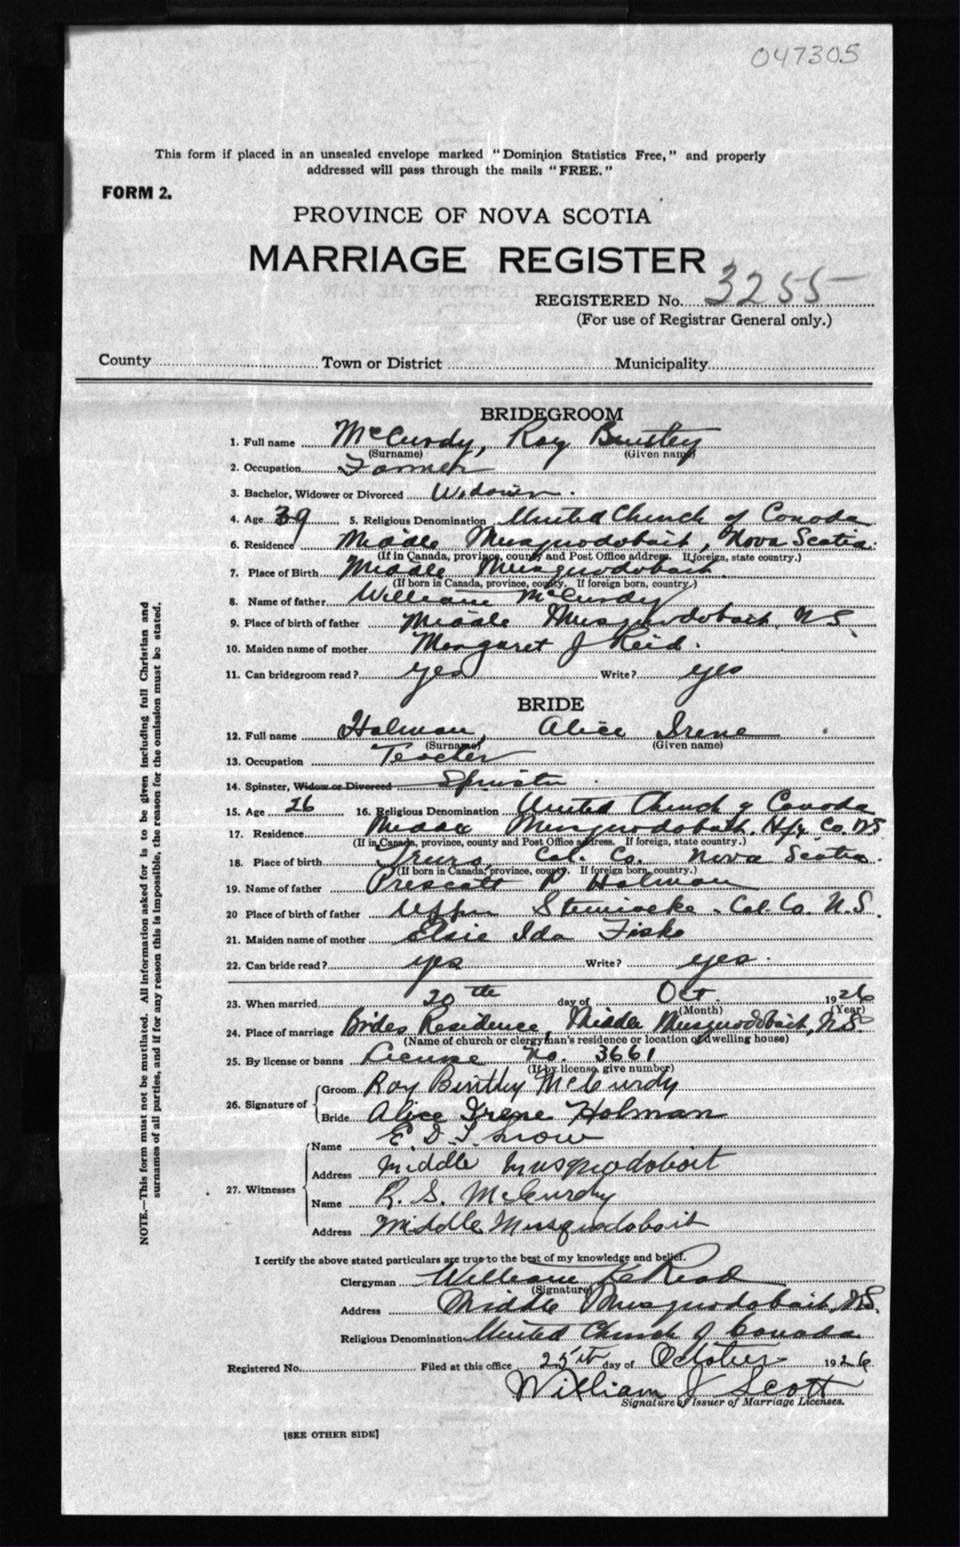 047305
This form if placed in an unsealed envelope marked "Dominion Statistics Free," and properly
addressed will pass through the mails "FREE."
FORM 2.
PROVINCE OF NOVA SCOTIA
MARRIAGE REGISTER
REGISTERED No. 3255
(For use of Registrar General only.)
County Town or District Municipality
BRIDEGROOM
1. Full name McCurdy, Roy Bentley
(Surname) (Given name)
2. Occupation Farmer
3. Bachelor, Widower or Divorced Widower.
4. Age 39 5. Religious Denomination United Church of Canada
6. Residence Middle Musquodoboit, Nova Scotia.
(If in Canada, province, county and Post Office address. If foreign, state country.)
7. Place of Birth Middle Musquodoboit.
(If born in Canada, province, county. If foreign born, country.)
8. Name of father William McCurdy
9. Place of birth of father Middle Musquodoboit, N.S.
10. Maiden name of mother Margaret J Reid.
11. Can bridegroom read? yes Write? yes
BRIDE
12. Full name Holman, Alice Irene
(Surname) (Given name)
13. Occupation Teacher
14. Spinster, Widow or Divorced Spinster
15. Age 26 16. Religious Denomination United Church of Canada
17. Residence Middle Musquodoboit, Hfx Co. NS
(If in Canada, province, county and Post Office address. If foreign, state country.)
18. Place of birth Truro, Col. Co. Nova Scotia.
(If born in Canada, province, county. If foreign born, country.)
19. Name of father Prescott Holman
20 Place of birth of father Upper Stewiacke, Col Co. N.S.
21. Maiden name of mother Elsie Ida Fisk
22. Can bride read? yes Write? yes.
23. When married 20th day of Oct. 1926
(Month) (Year)
24. Place of marriage Brides Residence, Middle Musquodoboit, N.S.
(Name of church or clergyman's residence or location of dwelling house)
25. By license or banns License No. 3661
(If by license, give number)
26. Signature of Groom Roy Bentley McCurdy
Bride Alice Irene Holman
27. Witnesses Name E. D. Snow
Address Middle Musquodoboit
Name R. S. McCurdy
Address Middle Musquodoboit
I certify the above stated particulars are true to the best of my knowledge and belief.
Clergyman William Read
(Signature)
Address Middle Musquodoboit, N.S.
Religious Denomination United Church of Canada
Registered No. Filed at this office 25th day of October 1926
William J Scott
Signature of Issuer of Marriage Licenses.
[SEE OTHER SIDE]
NOTE.—This form must not be mutilated. All information asked for is to be given including full Christian and
surnames of all parties, and if for any reason this is impossible, the reason for the omission must be stated.